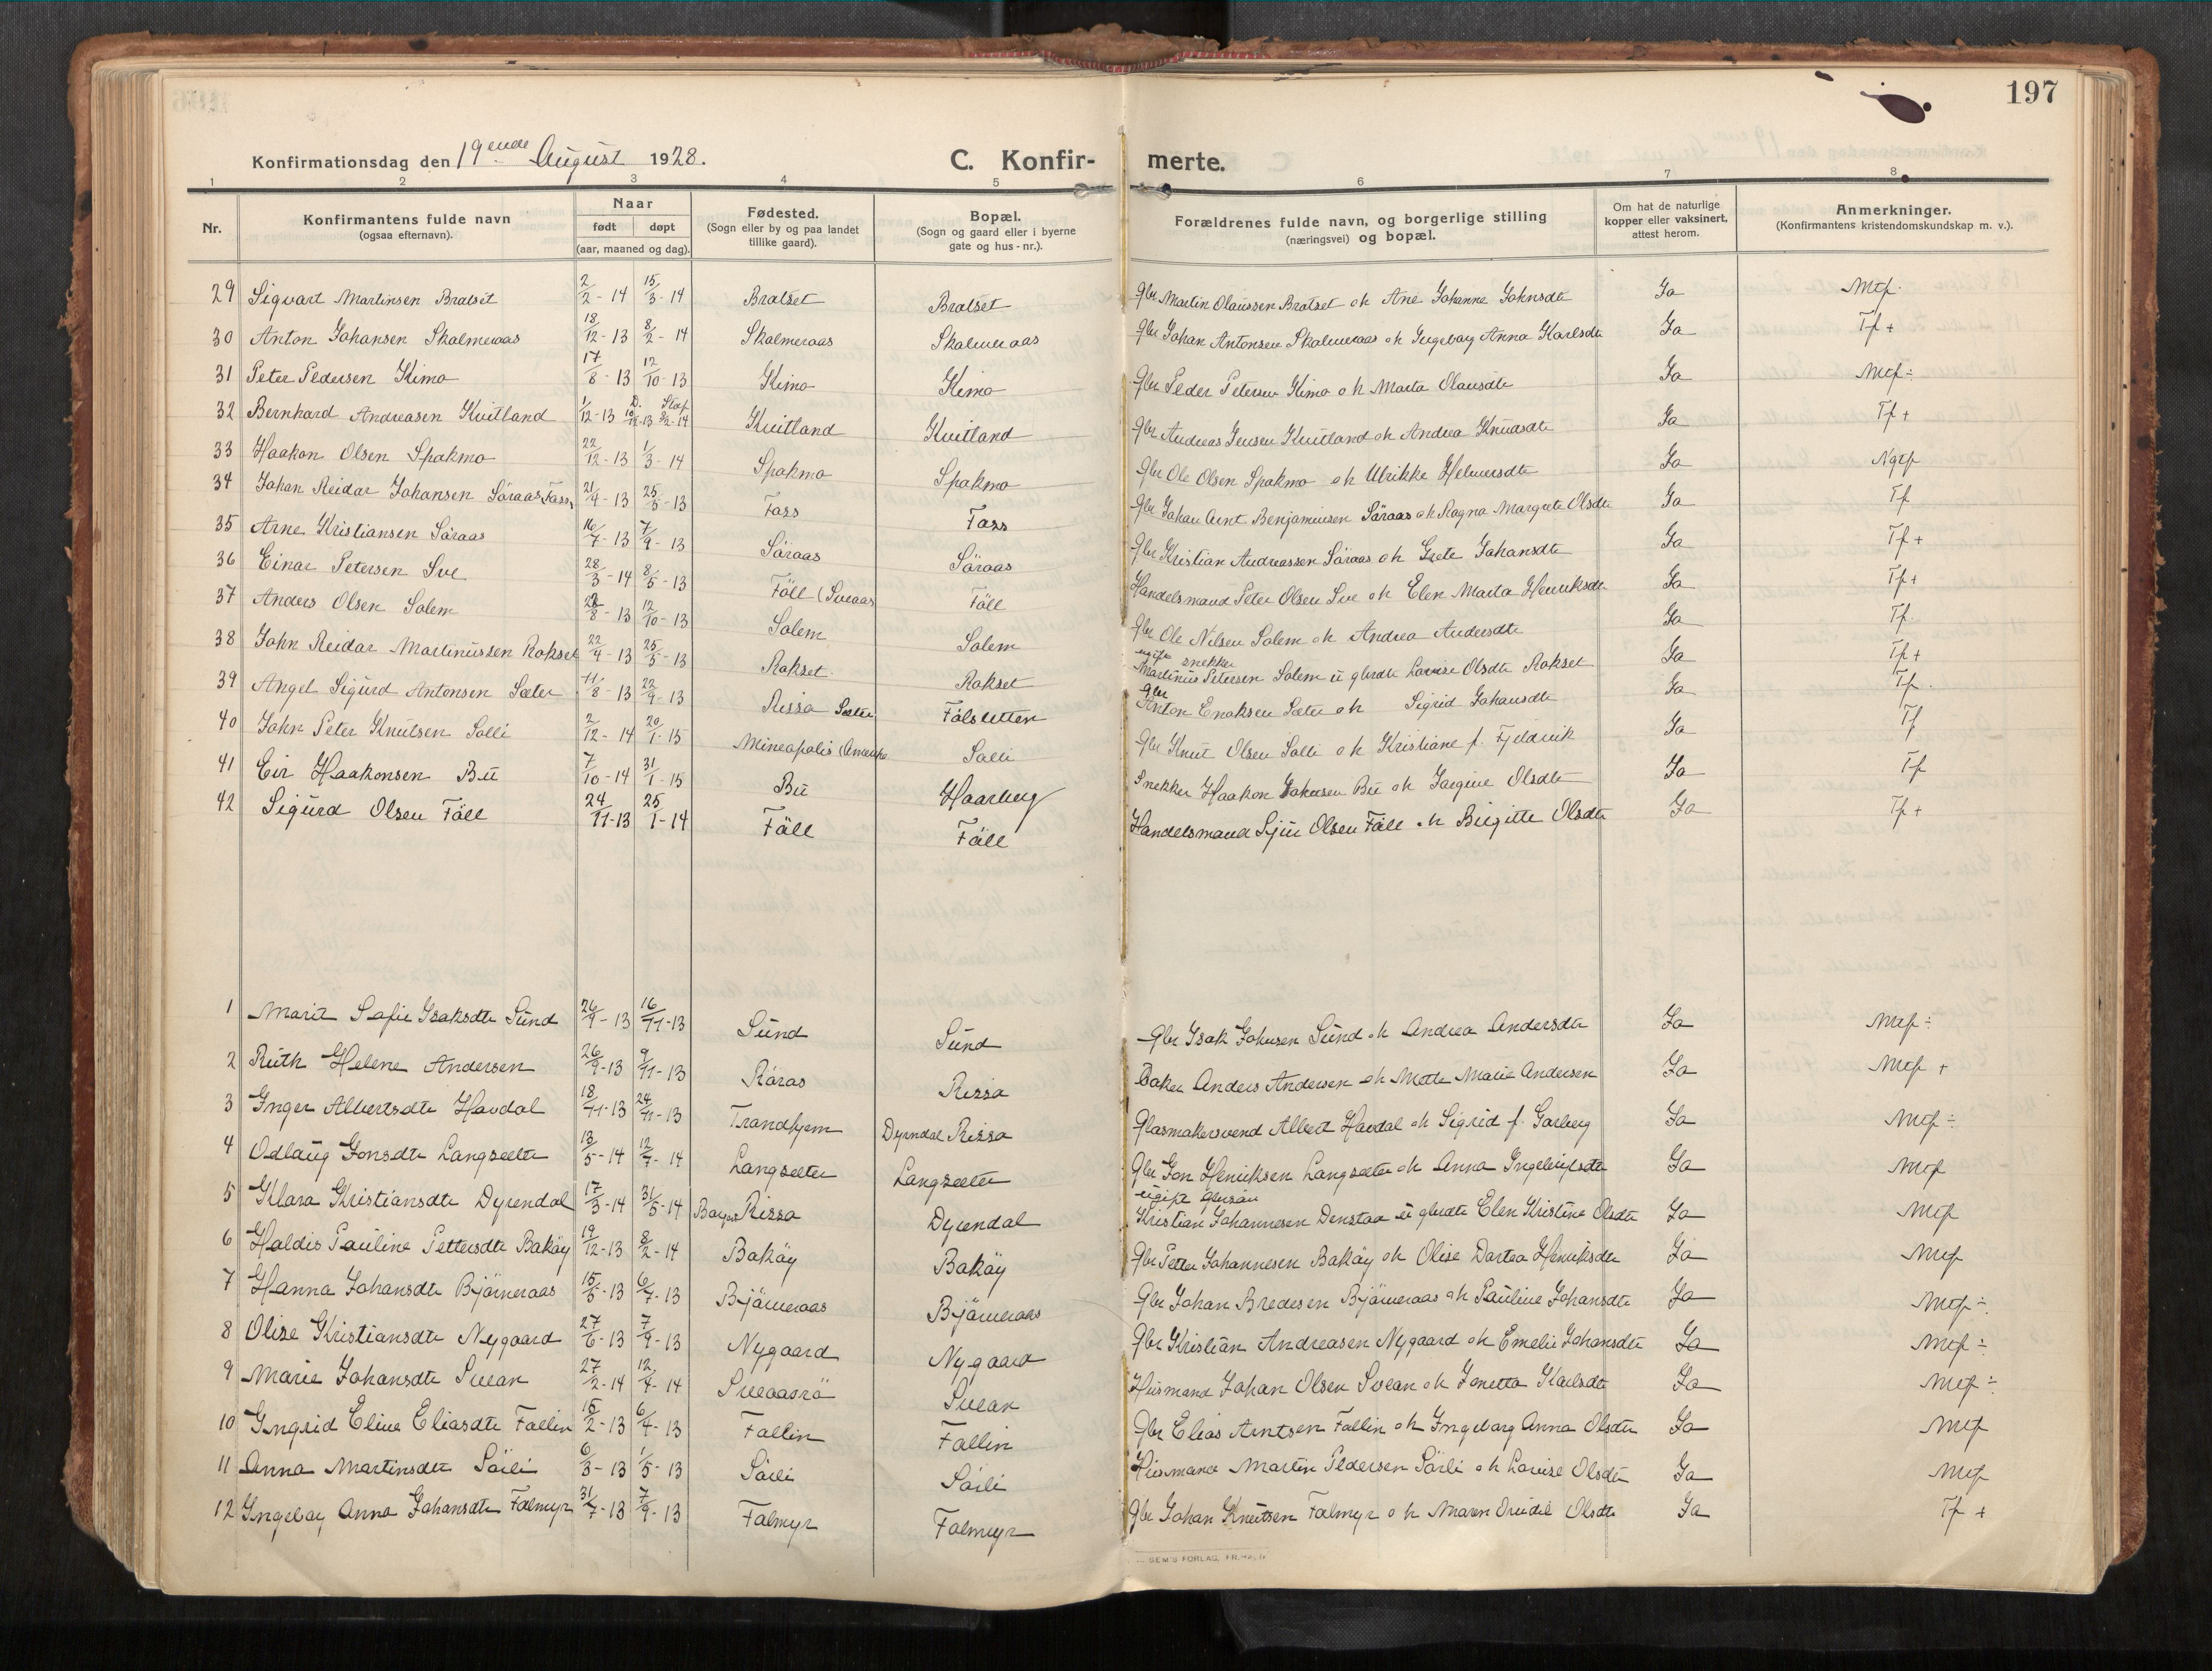 197
Konfirmationsdag den 19ende August 1928.
C. Konfir- merte.
1 2 3 4 5 6 7 8
Nr. Konfirmantens fulde navn (ogsaa efternavn). Naar født døpt (aar, maaned og dag). Fødested. (Sogn eller by og paa landet tillike gaard). Bopæl. (Sogn og gaard eller i byerne gate og hus-nr.). Forældrenes fulde navn, og borgerlige stilling (næringsvei) og bopæl. Om hat de naturlige kopper eller vaksinert, attest herom. Anmerkninger. (Konfirmantens kristendomskundskap m. v.).
29 Sigvart Martinsen Bratset 2/2-14 15/3-14 Bratset Bratset Gbr Martin Olaussen Bratset o h Ane Johanne Johnsdtr Ja Mtf.
30 Anton Johansen Skalmeraas 18/12-13 8/2-14 Skalmeraas Skalmeraas Gbr Johan Antonsen Skalmeraas o h Ingeborg Anna Karlsdtr Ja Tf +
31 Peter Pedersen Kimo 17/8-13 12/10-13 Kimo Kimo Gbr Peder Petersen Kimo o h Marta Olausdtr Ja Mtf ÷
32 Bernhard Andreasen Kvitland 1/12-13 D. Staf Kvitland Kvitland Gbr Andreas Jensen Kvitland o h Andrea Knudsdtr Ja Tf +
33 Haakon Olsen Spakmo 22/12-13 1/3-14 Spakmo Spakmo Gbr Ole Olsen Spakmo o h Ulrikke Helmersdtr Ja Ngtf
34 Johan Reidar Johansen Söraas Fass 21/4-13 25/5-13 Fass Fass Gbr Johan Arnt Benjaminsen Söraas o h Ragna Margrete Olsdtr Ja Tf
35 Arne Kristiansen Söraas 16/7-13 7/9-13 Söraas Söraas Gbr Kristian Andreassen Söraas o h Grete Johansdtr Ja Tf +
36 Einar Petersen Sve 28/3-14 8/5-13 Föll (Sveaas Föll Handelsmand Peter Olsen Sve o h Elen Marta Henriksdtr Ja Tf +
37 Anders Olsen Solem 28/8-13 12/10-13 Solem Solem Gbr Ole Nilsen Solem o h Andrea Andersdtr Ja Tf.
38 John Reidar Martinussen Rokset 22/4-13 25/5-13 Rokset Rokset ugift snekker Martinus Petersen Solem u gbrdtr Lovise Olsdtr Rokset Ja Tf +
39 Angel Sigurd Antonsen Sæter 11/8-13 22/9-13 Rissa Sæter Fölstetten Gbr Anton Enoksen Sæter o h Sigrid Johansdtr Ja Tf.
40 John Peter Knutsen Solli 2/12-14 20/1-15 Mineapolis (Amerika Solli Gbr Knut Olsen Solli o h Kristiane f. Fjeldvik Ja Tf
41 Eir Haakonsen Bu 7/10-14 31/1-15 Bu Haarberg Snekker Haakon Johnsen Bu o h Jorgine Olsdtr Ja Tf
42 Sigurd Olsen Föll 24/11-13 25/1-14 Föll Föll Handelsmand Sjur Olsen Föll o h Birgitte Olsdtr Ja Tf +
1 Marit Sofie Isaksdtr Sund 26/9-13 16/11-13 Sund Sund Gbr Isak Johnsen Sund o h Andrea Andersdtr Ja Mtf ÷
2 Ruth Helene Andersen 26/9-13 9/11-13 Röros Rissa Baker Anders Andersen o h Mette Marie Andersen Ja Mtf +
3 Inger Albertsdtr Havdal 18/11-13 24/11-13 Trondhjem Dyrndal Rissa Glasmakersvend Albert Havdal o h Sigrid f. Garberg Ja Mtf ÷
4 Odlaug Jonsdtr Langsæter 13/5-14 12/7-14 Langsæter Langsæter Gbr Jon Henriksen Langsæter o h Anna Ingebrigtsdtr Ja Mtf
5 Klara Kristiansdtr Dyrendal 17/3-14 31/5-14 Rissa Dyrendal ugift gbrsön Kristian Johannesen Denstad u gbrdtr Elen Kristine Olsdtr Ja Mtf
6 Haldis Pauline Pettersdtr Baköy 19/12-13 8/2-14 Baköy Baköy Gbr Petter Johannesen Baköy o h Olise Dortea Henriksdtr Ja Mtf
7 Hanna Johansdtr Björneraas 15/5-13 6/7-13 Björneraas Björneraas Gbr Johan Bredesen Björneraas o h Pauline Johansdtr Ja Mtf ÷
8 Olise Kristiansdtr Nygaard 27/6-13 7/9-13 Nygaard Nygaard Gbr Kristian Andreasen Nygaard o h Emelie Johansdtr Ja Mtf ÷
9 Marie Johansdtr Svean 27/2-14 12/4-14 Sveaasrö Svean Husmand Johan Olsen Svean o h Jonetta Karlsdtr Ja Mtf ÷
10 Ingrid Eline Eliasdtr Fallin 15/2-13 6/4-13 Fallin Fallin Gbr Elias Arntsen Fallin o h Ingeborg Anna Olsdtr Ja Mtf
11 Anna Martinsdtr Sörli 6/3-13 1/5-13 Sörli Sörli Husmand Martin Pedersen Sörli o h Lovise Olsdtr Ja Mtf
12 Ingeborg Anna Johansdtr Falmyr 31/7-13 7/9-13 Falmyr Falmyr Gbr Johan Knutsen Falmyr o h Maren Olsdtr Ja Tf +
SEM'S FORLAG, FR.HALD